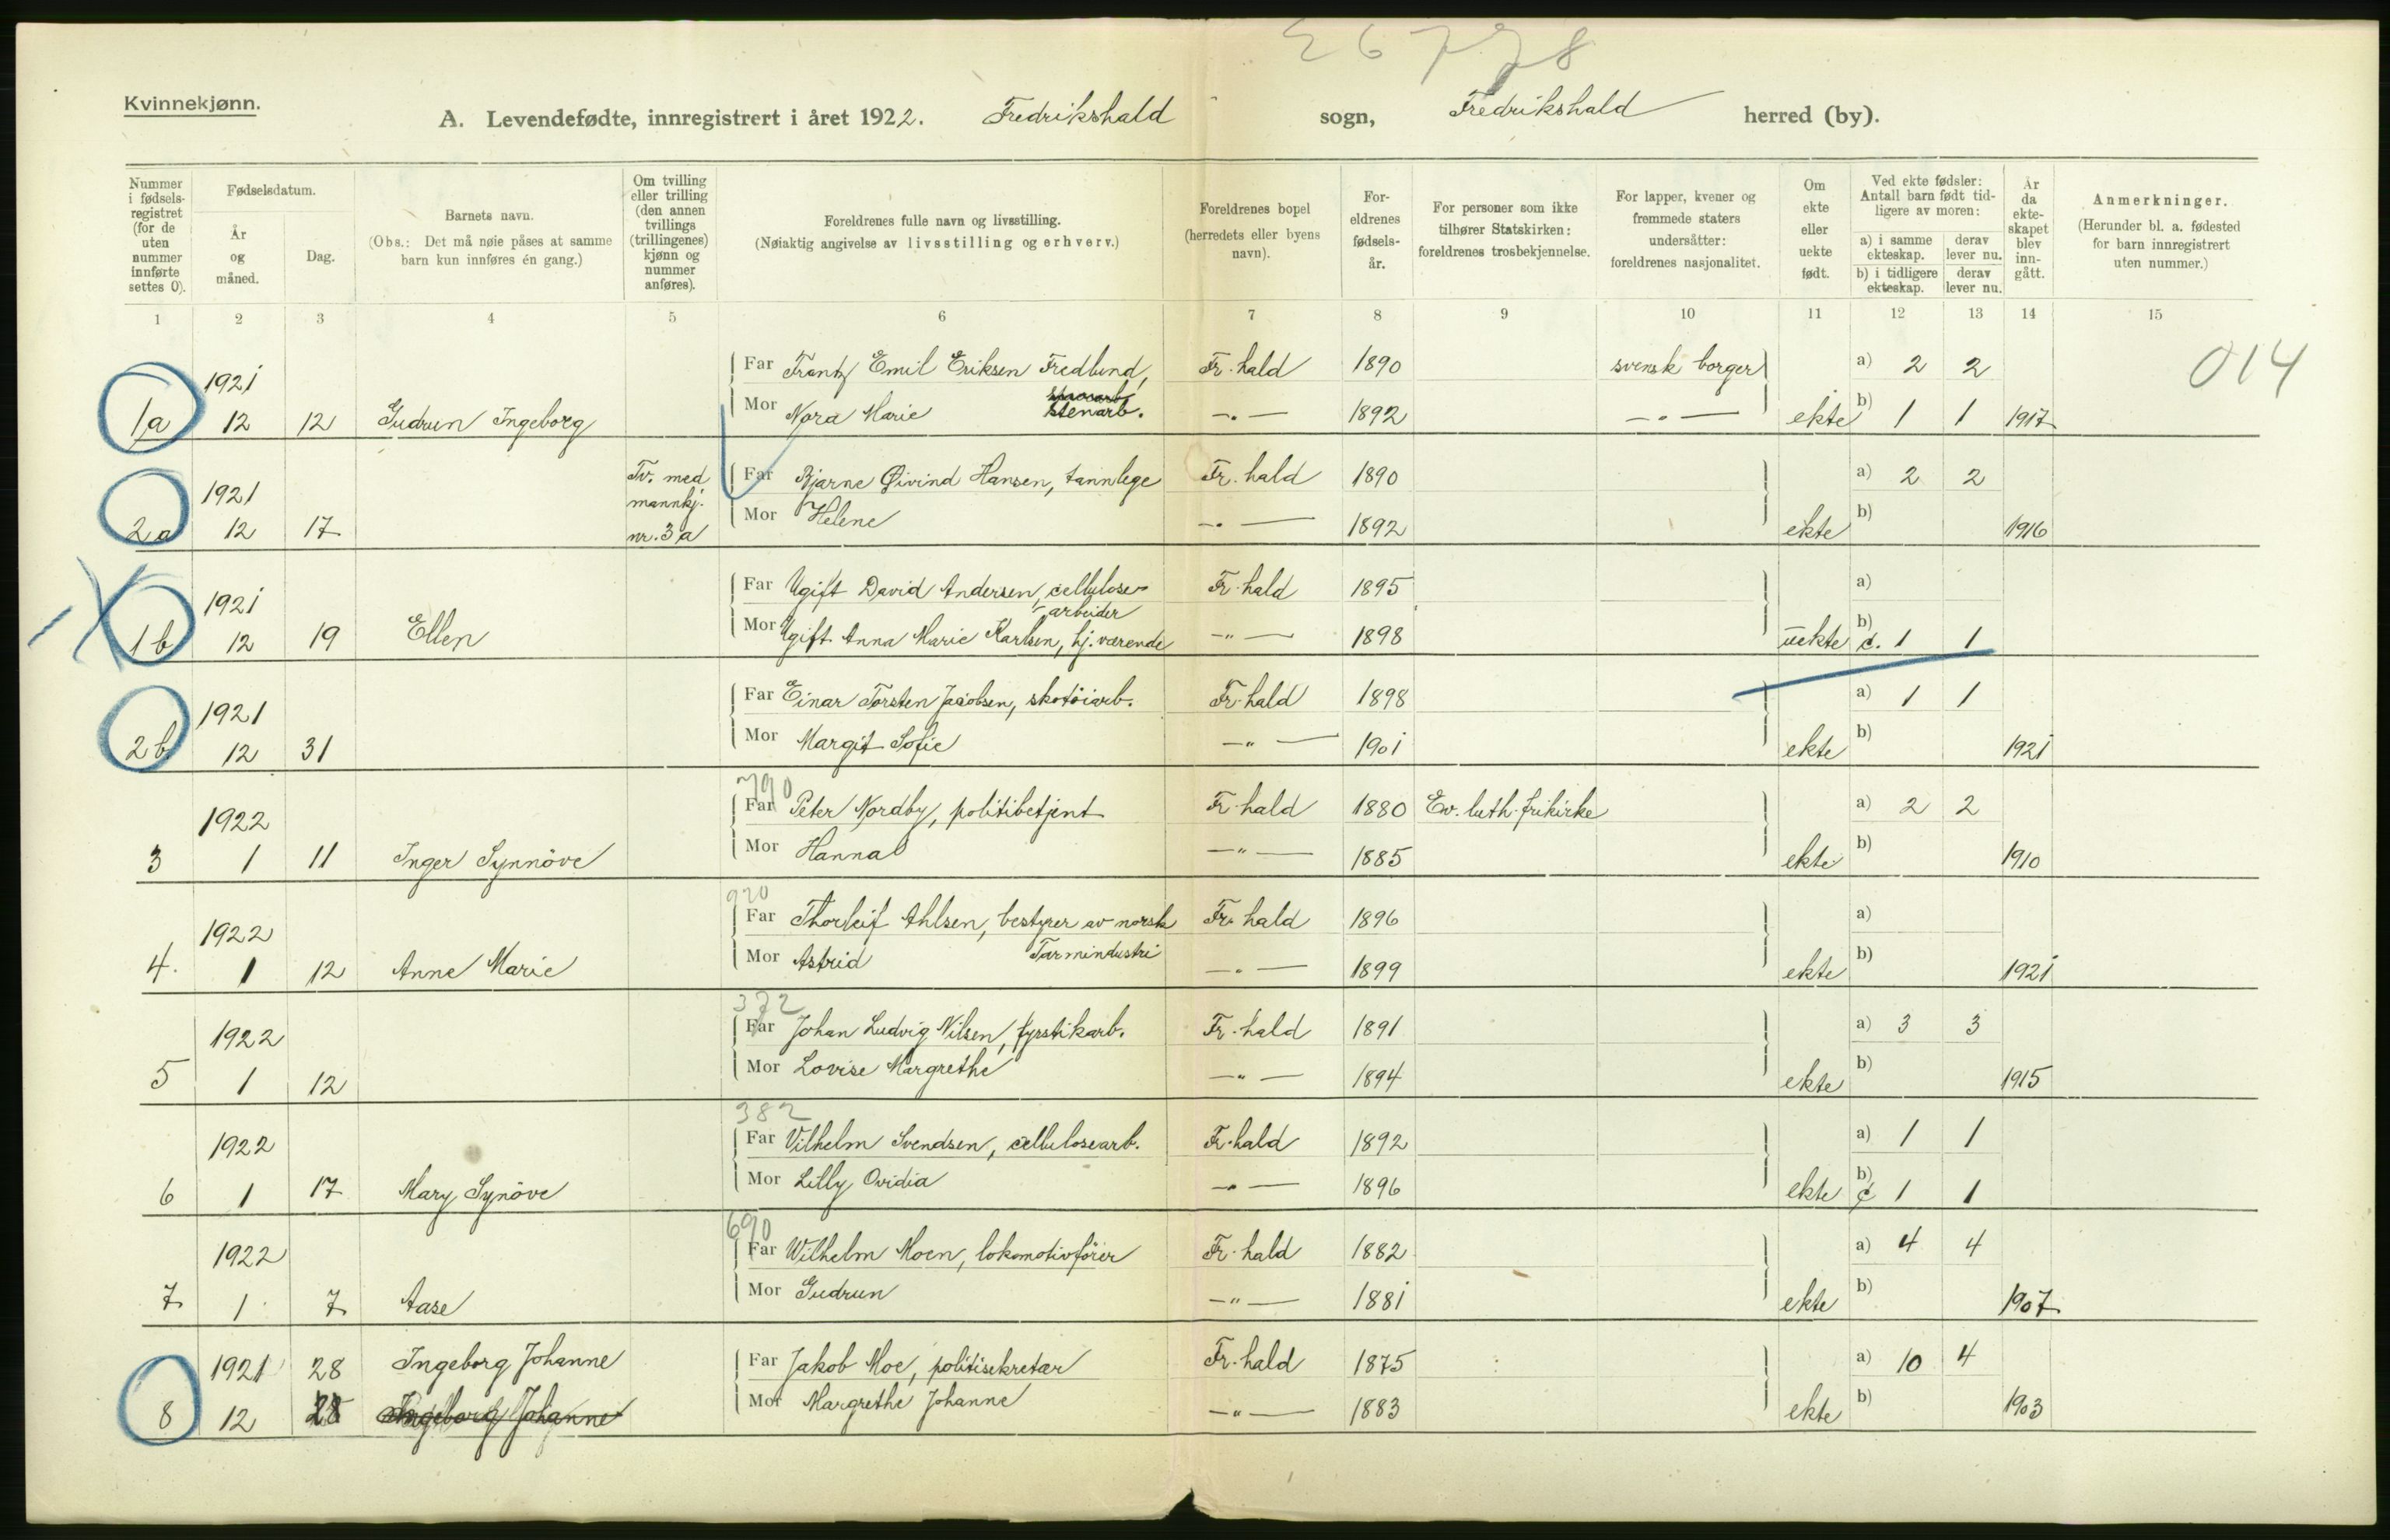 26778
Kvinnekjønn.
A. Levendefødte, innregistrert i året 1922. Fredrikshald sogn, Fredrikshald herred (by).
Nummer i fødsels-registret (for de uten nummer innførte settes 0).
Fødselsdatum.
År og måned.
Dag.
Barnets navn.
(Obs.: Det må nøie påses at samme barn kun innføres én gang.)
Om tvilling eller trilling (den annen tvillings (trillingenes) kjønn og nummer anføres).
Foreldrenes fulle navn og livsstilling.
(Nøiaktig angivelse av livsstilling og erhverv.)
Foreldrenes bopel (herredets eller byens navn).
For-eldrenes fødsels-år.
For personer som ikke tilhører Statskirken: foreldrenes trosbekjennelse.
For lapper, kvener og fremmede staters undersåtter: foreldrenes nasjonalitet.
Om ekte eller uekte født.
Ved ekte fødsler: Antall barn født tid-ligere av moren:
a) i samme ekteskap.
derav lever nu.
b) i tidligere ekteskap.
derav lever nu.
År da ekte-skapet blev inn-gått.
Anmerkninger.
(Herunder bl. a. fødested for barn innregistrert uten nummer.)
1 2 3 4 5 6 7 8 9 10 11 12 13 14 15
014
1921 Far Frantz Emil Eriksen Fredlund, Fr.hald 1890 svensk borger a) 2 2
1a 12 12 Gudrun Ingeborg Mor Nora Marie stenarb. —"— 1892 —"— ekte b) 1 1 1917
1921 Tv. med mannkj. Far Bjarne Øivind Hansen, tannlege Fr.hald 1890 a) 2 2
2a 12 17 nr. 3a Mor Helene —"— 1892 ekte b) 1916
1921 Far Ugift David Andersen, cellulose-
arbeider Fr.hald 1895 a)
1b 12 19 Ellen Mor Ugift Anna Marie Karlsen, hj. værende —"— 1898 uekte b) c. 1 1
1921 Far Einar Torsten Jacobsen, skotöiarb. Fr.hald 1898 a) 1 1
2b 12 31 Mor Margit Sofie —"— 1901 ekte b) 1921
790
1922 Far Peter Nordby, politibetjent Fr.hald 1880 Ev. luth. frikirke a) 2 2
3 1 11 Inger Synnöve Mor Hanna —"— 1885 ekte b) 1910
920
1922 Far Thorleif Ahlsen, bestyrer av norsk Fr.hald 1896 a)
4. 1 12 Anne Marie Mor Astrid Tarmindustri —"— 1899 ekte b) 1921
372
1922 Far Johan Ludvig Nilsen, fyrstikarb. Fr.hald 1891 a) 3 3
5 1 12 Mor Lovise Margrethe —"— 1894 ekte b) 1915
382
1922 Far Vilhelm Svendsen, cellulosearb. Fr.hald 1892 a) 1 1
6 1 17 Mary Synöve Mor Lilly Ovidia —"— 1896 ekte b) c 1 1
690
1922 Far Wilhelm Moen, lokomotivförer Fr.hald 1882 a) 4 4
7 1 7 Aase Mor Gudrun —"— 1881 ekte b) 1907
1921 28 Ingeborg Johanne Far Jakob Moe, politisekretær Fr.hald 1875 a) 10 4
8 12 28 Ingeborg Johanne Mor Margrethe Johanne —"— 1883 ekte b) 1903